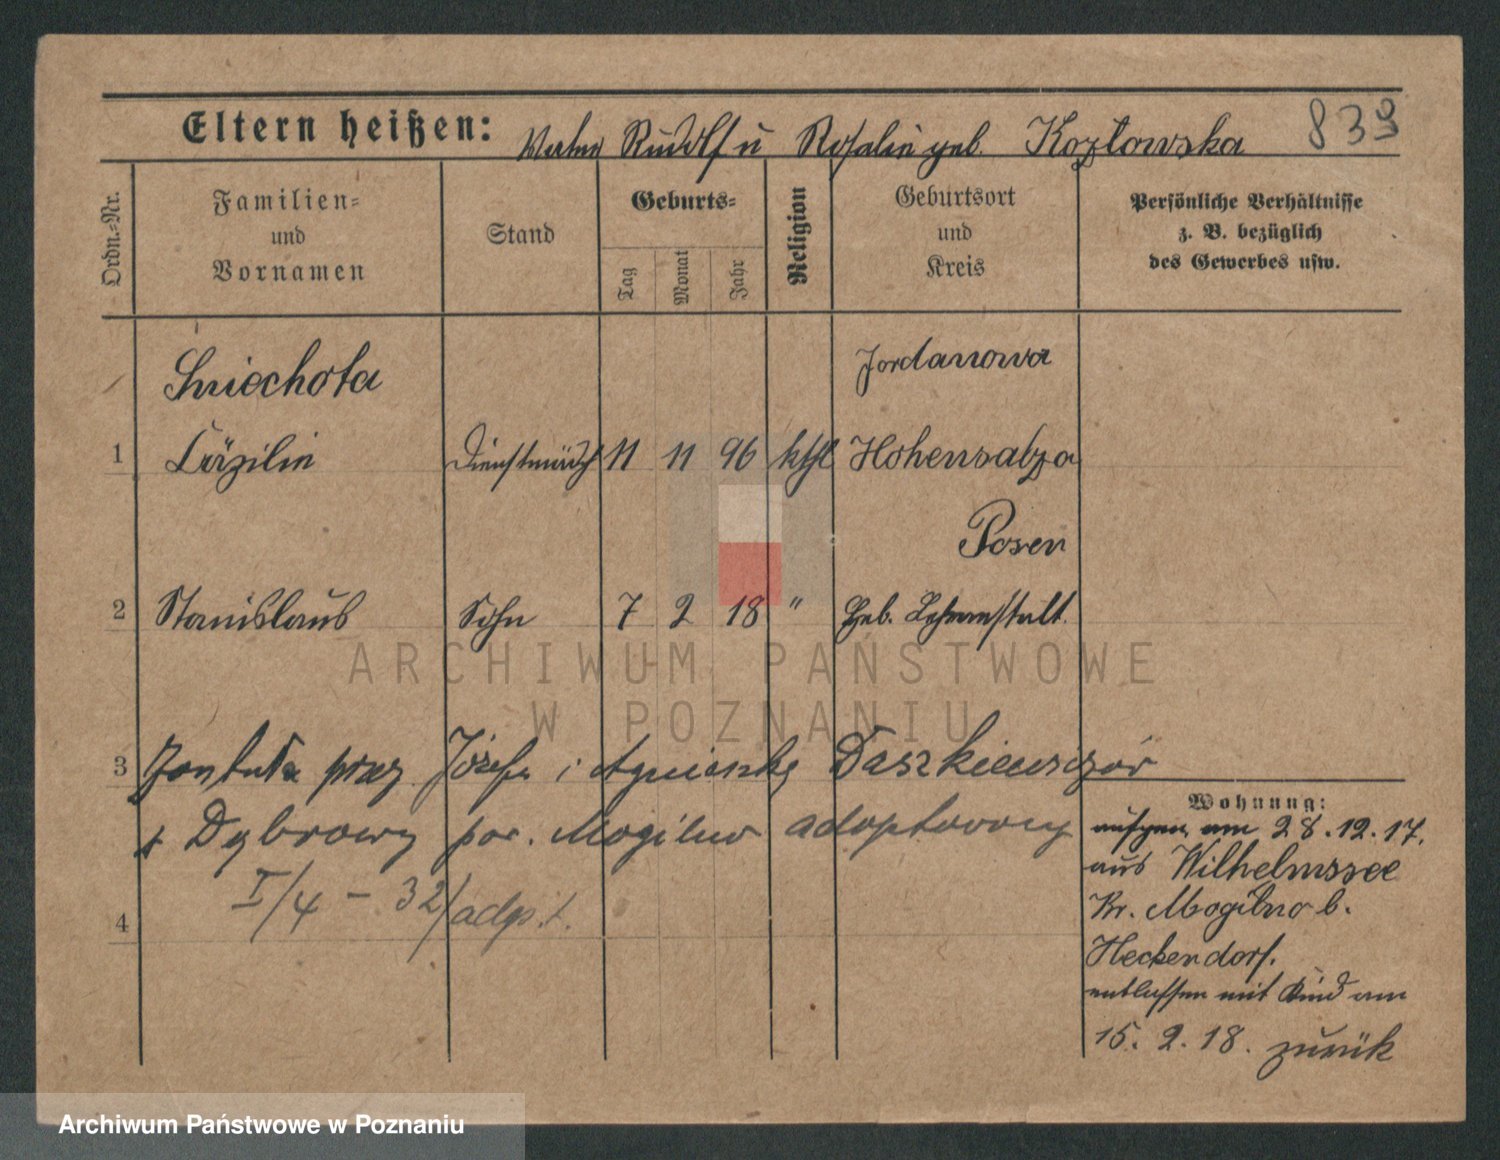 Eltern heißen: Rudolf u Rosalie geb. Kozłowska 839
Ordn.-Nr.
Familien-
und
Vornamen
Stand
Geburts-
Tag
Monat
Jahr
Religion
Geburtsort
und
Kreis
Persönliche Verhältnisse
z. B. bezüglich
des Gewerbes usw.
Sniechota Jordanowa
1 Cäzilie Dienstmädch 11 11 96 kthl Hohensalza
Posen
2 Stanislaus Sohn 7 2 18 " Heb. Lehranstalt.
3 przez Józefa i Agnieszkę Daszkiewiczów
z Dąbrowy pow. Mogilno adoptowany
I/4 - 32/adpt.
4
Wohnung:
aufgen. am 28.12.17.
aus Wilhelmssee
Kr. Mogilno b.
Heckendorf.
entlassen mit Kind am
15. 2. 18. zurück
ARCHIWUM PAŃSTWOWE
W POZNANIU
Archiwum Państwowe w Poznaniu